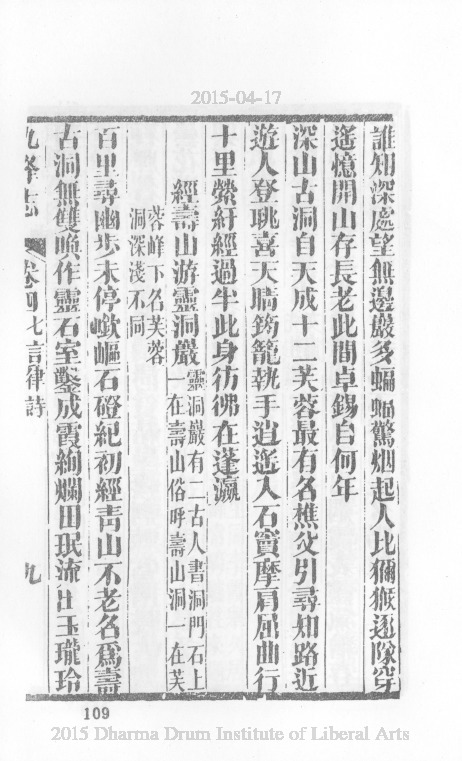 2015-04-17
誰知深處望無邊巖多蝙蝠驚烟起人比獮猴逐隊穿
遙憶開山存長老此間卓錫自何年
深山古洞自天成十二芙蓉最有名樵父引尋知路近
遊人登眺喜天晴筠籠執手逍遙入石竇摩肩屈曲行
十里縈紆經過半此身彷彿在蓬瀛
經壽山游靈洞巖
靈洞巖有二古人書洞門石上
一在壽山俗呼壽山洞一在芙
蓉峰下名芙蓉
洞深淺不同
百里尋幽步未停嶔嶇石磴紀初經青山不老名爲壽
古洞無雙喚作靈石室鑿成霞絢爛田珉流出玉瓏玲
九峰志
卷四七言律詩
九
109
2015 Dharma Drum Institute of Liberal Arts